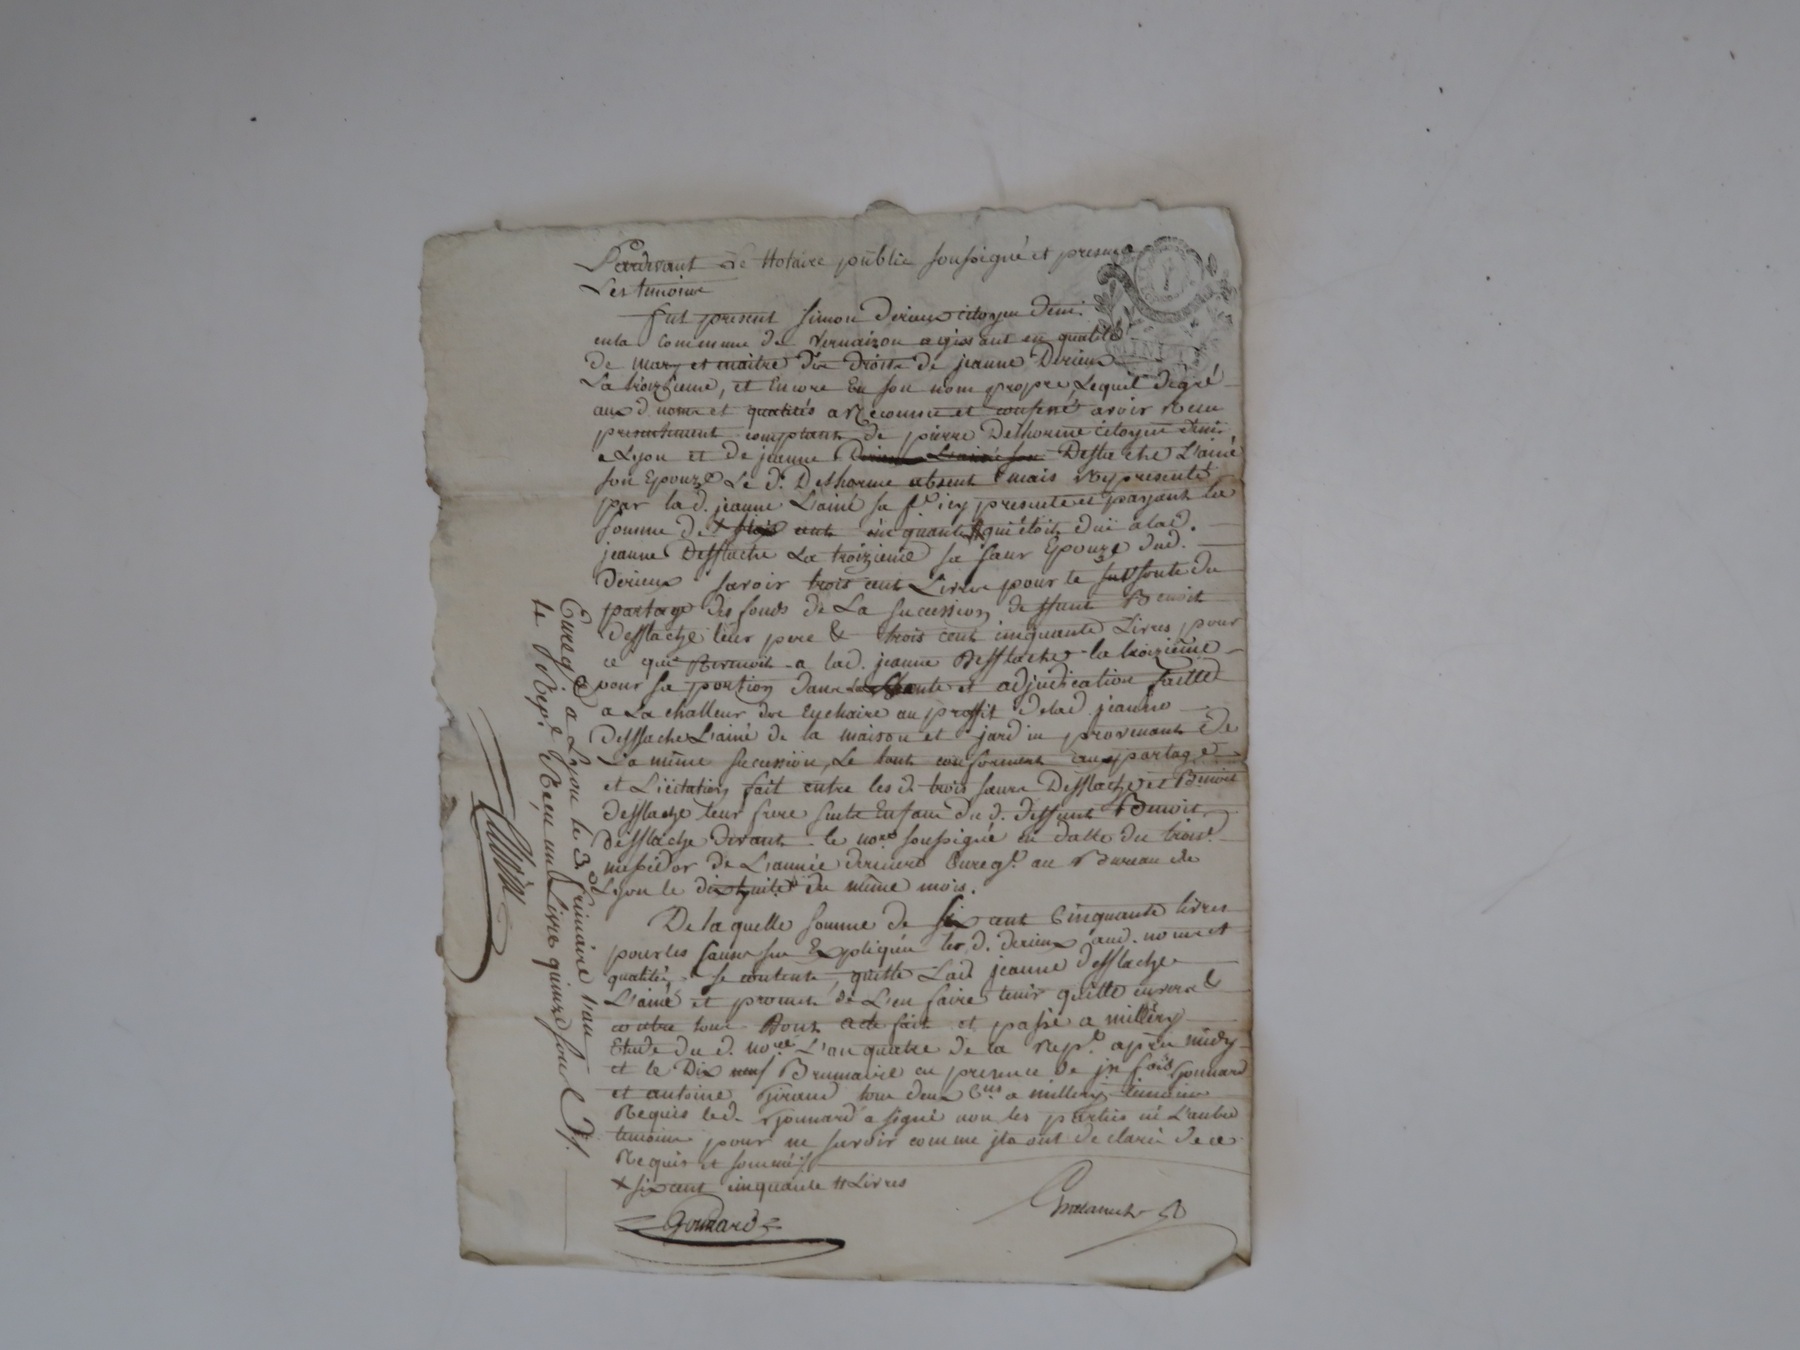 Pardevant Le Notaire public soussigné et presence
Les temoins
fut present Simon Derieux citoyen dem.
en la Commune de Vernaizon agissant en qualité
de mary et maitre des droits de jeanne Derieux
La troizieme, et Encore En son nom propre, Lequel de gré
aux d. noms et qualités a Reconnu et confessé avoir Recu
presentement comptant de pierre Delhorme citoyen dem.
a Lyon et de jeanne Desflache L'ainé
son Epouze Le d. Delhorme absent mais Representé
par lad. jeanne L'ainé sa f.e icy presente et payant la
somme de + qui étoit duë a lad.
jeanne Desflache La troizieme sa sœur Epouze dud.
Derieux savoir trois cent Livres pour le sus soute du
partage des fonds de La succession de deffunt Benoit
desflache leur pere & trois cent cinquante Livres pour
ce qui Revenoit a lad. jeanne Desflache la troizieme
pour sa portion dans vente et adjudication faitte
a La challeur des Encheires au proffit de lad. jeanne
desflache L'ainé de la maison et jardin provenant de
La même succession, Le tout conforment aux partage
et Licitation fait entre les d. trois sœurs Desflache et Benoit
desflache leur frere suits Enfans du d. deffunt Benoit
desflache devant le no.re soussigné en datte du trois
messidor de L'année derniere Enreg.é au Bureau de
Lyon le dix huit du même mois.
De la quelle somme de six cent Cinquante livres
pour les causes sus Expliquées led. d. derieux aud. noms et
qualités, se contente, quitte Lad. jeanne desflache
L'ainé et promet de L'en faire tenir quitte envers &
contre tous Dont acte fait et passé a millery
Etude du d. no.re L'an quatre de la Rep.e après midy
et le Dix neuf Brumaire en presence de jn. fois Gonnard
et antoine Giraud tous deux C.ens a millery temoins
Requis led. Gonnard a signé non les parties ni L'autre
temoin pour ne savoir comme ils ont declaré de ce
Requis et sommés
+ six cent cinquante # Livres
Gonnard
Enreg.é a Lyon le 3 frimaire l'an
4 Rep.e Reçu une Livre quinze sous